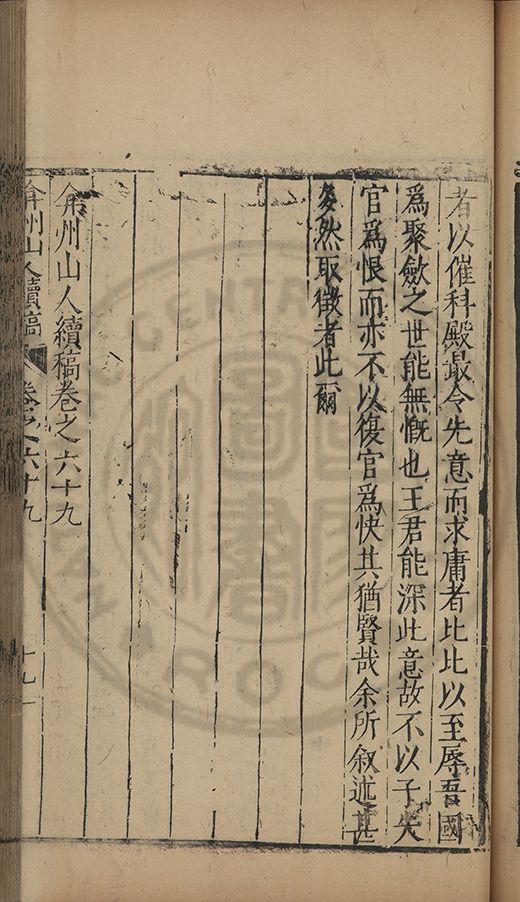 者以催科殿最令先意而求庸者比比以至辱吾國
為聚斂之世能無慨也王君能深此意故不以子失
官為恨而亦不以復官為快其猶賢哉余所叙述甚
多然取徵者此爾
弇州山人續稿卷之六十九
弇州山人續稿 卷之六十九 十九
NATIONAL CENTRAL LIBRARY